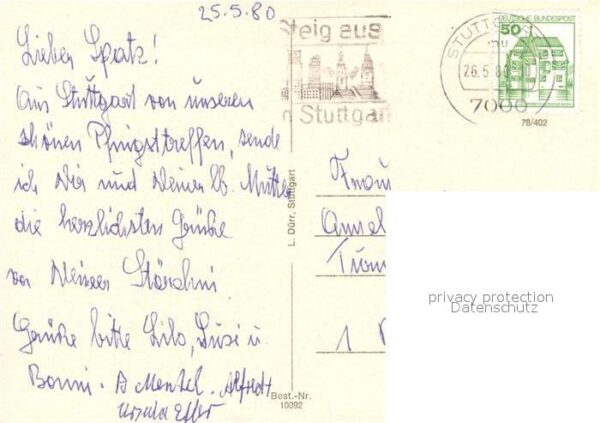 25.5.80
Lieber Spatz!
Aus Stuttgart von unseren
schönen Pfingsttreffen, sende
ich Dir und Deiner lb. Mutter
die herzlichsten Grüße
von Deiner
Grüße bitte Lilo, Susi u.
Bonni. Alfredt
Ursula
Steig aus
in Stuttgart
STUTTGART
26.5.80
7000
DEUTSCHE BUNDESPOST
50
78/402
L. Dürr, Stuttgart
Best.-Nr.
10092
Frau
1
privacy protection
Datenschutz